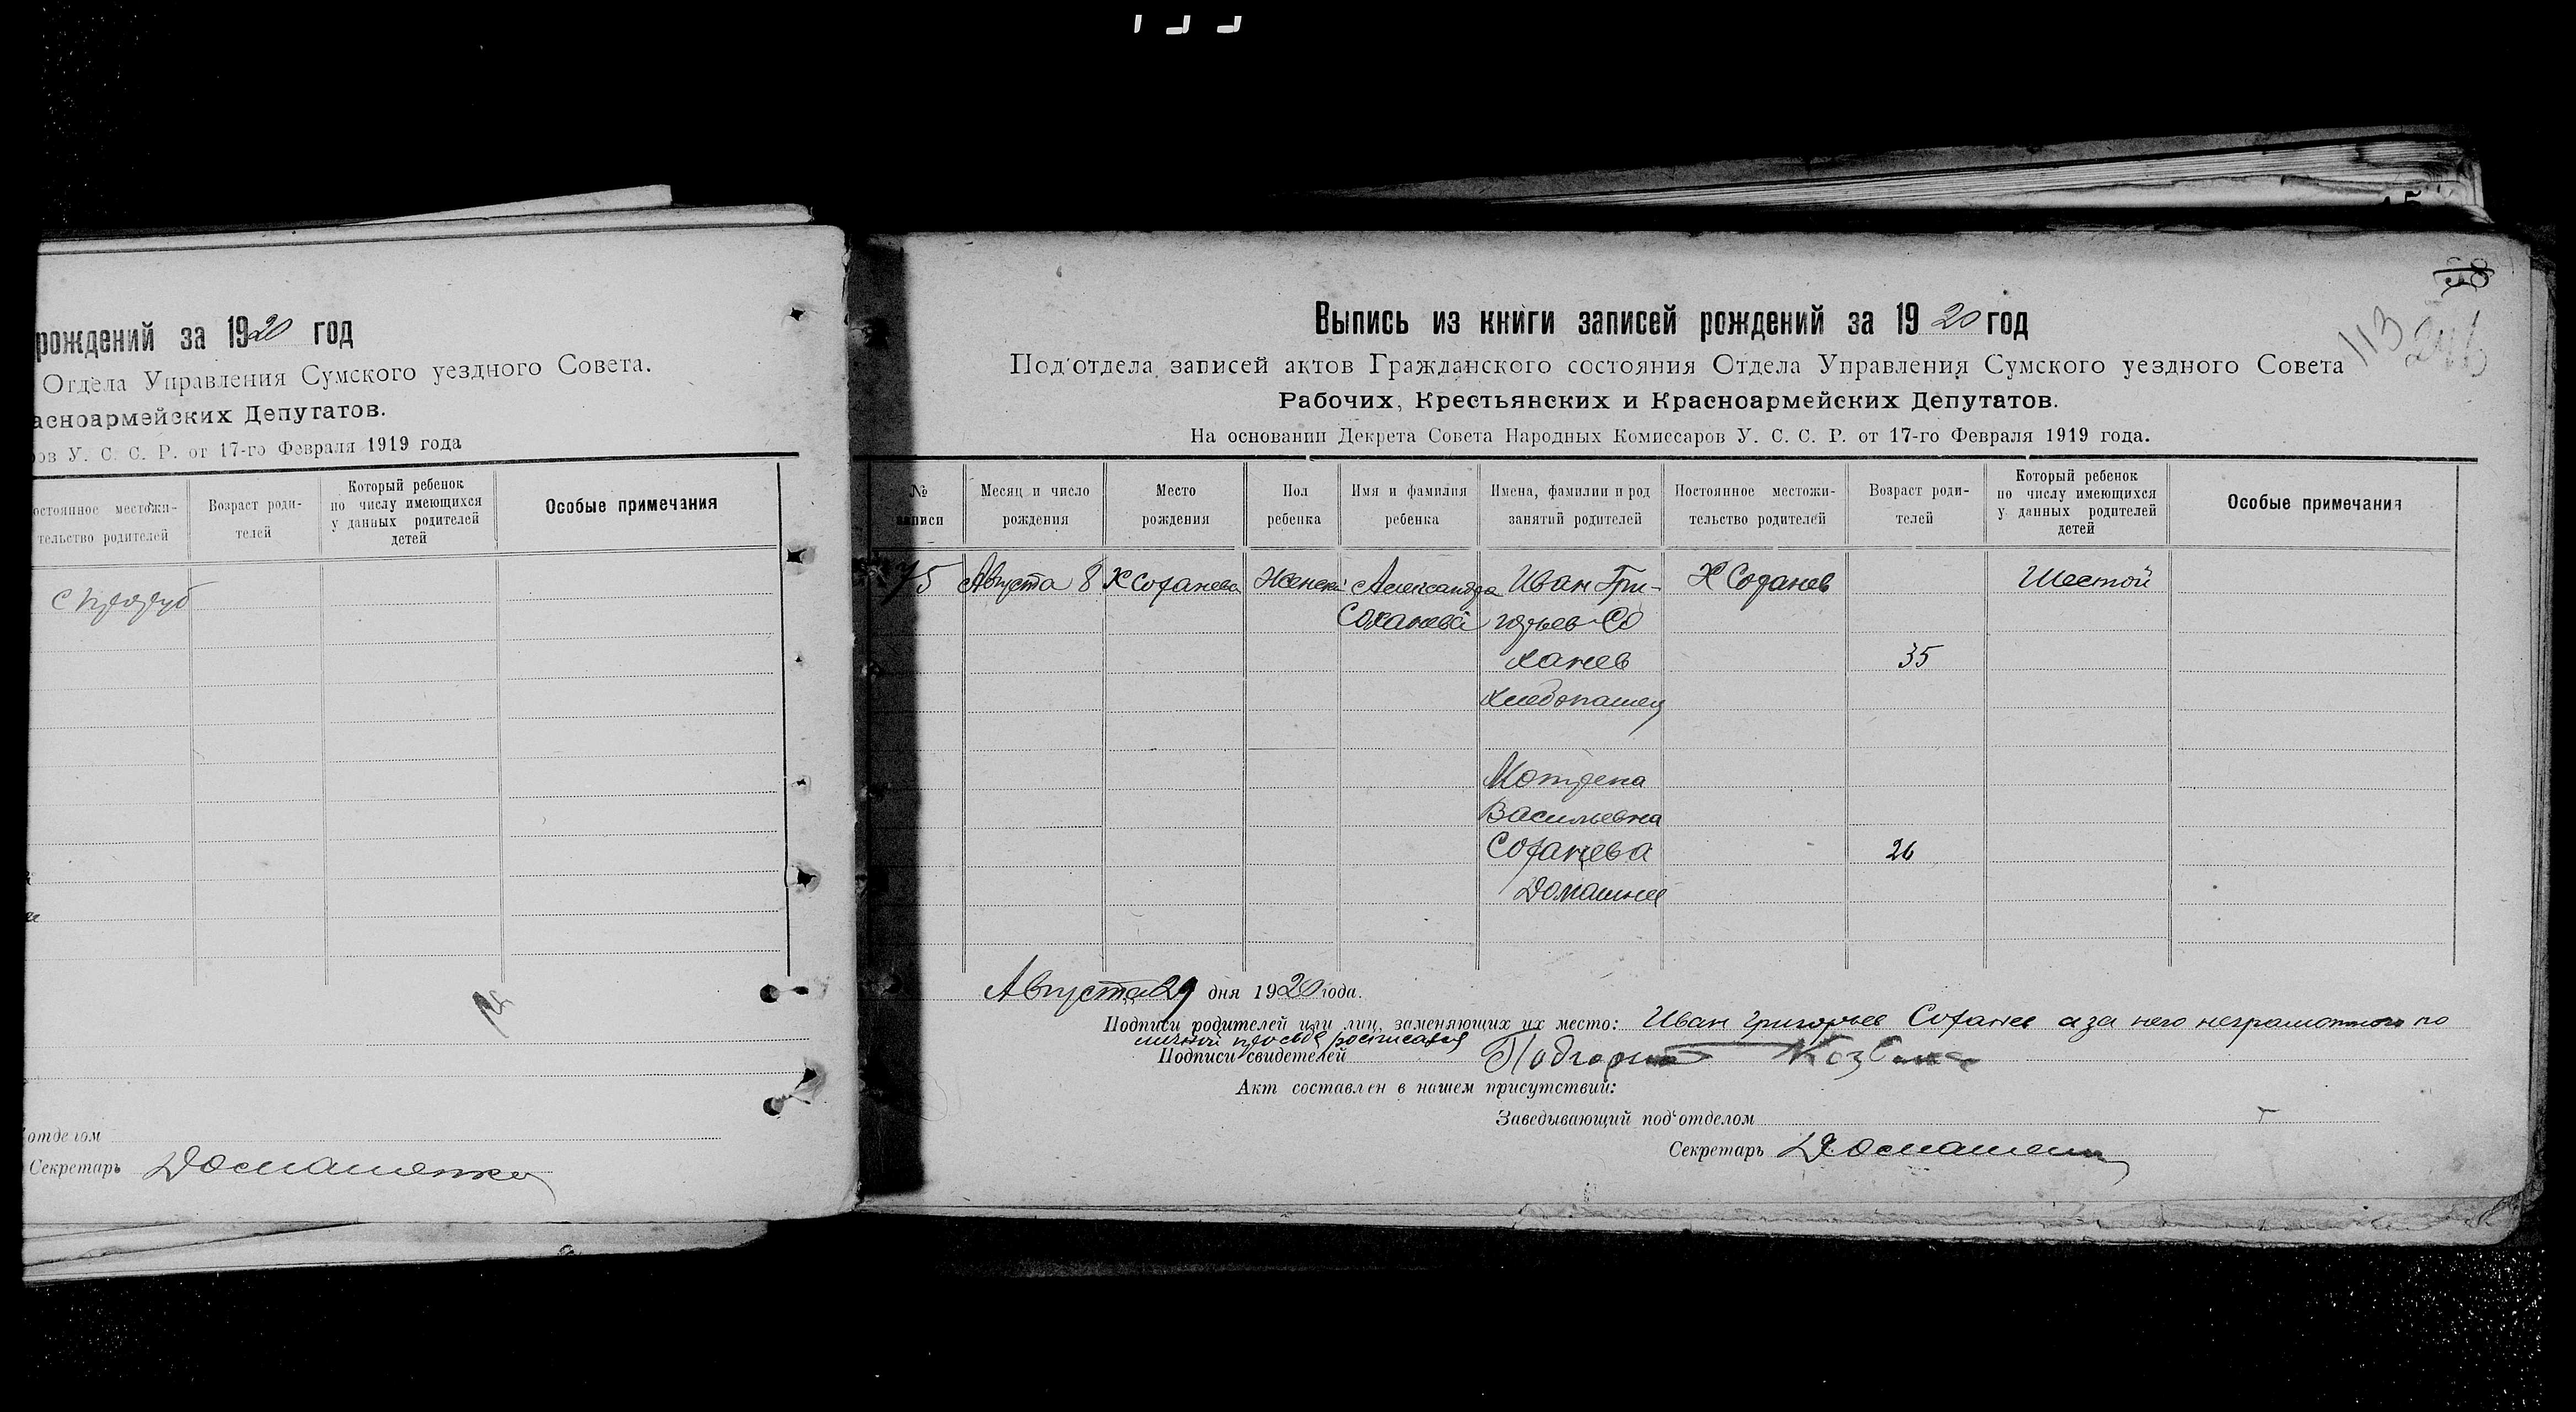 рождений за 1920 год
Отдела Управления Сумского уездного Совета.
асноармейских Депутатов.
ов У. С. С. Р. от 17-го Февраля 1919 года
остоянное местожи-
тельство родителей
Возраст роди-
телей
Который ребенок
по числу имеющихся
у данных родителей
детей
Особые примечания
отделом
Секретарь Домашенко
58
113
246
Выпись из книги записей рождений за 1920 год
Под'отдела записей актов Гражданского состояния Отдела Управления Сумского уездного Совета
Рабочих, Крестьянских и Красноармейских Депутатов.
На основании Декрета Совета Народных Комиссаров У. С. С. Р. от 17-го Февраля 1919 года.
№
записи
Месяц и число
рождения
Место
рождения
Пол
ребенка
Имя и фамилия
ребенка
Имена, фамилии и род
занятий родителей
Постоянное местожи-
тельство родителей
Возраст роди-
телей
Который ребенок
по числу имеющихся
у данных родителей
детей
Особые примечания
75 Августа 8 Х Соханева Женски Александра Иван Гри- Х Соханев Шестой
Соханева горьев Со
ханев 35
хлебопашец
Мотрена
Васильевна
Соханева 26
Домашнее
Августа 29 дня 1920 года.
Подписи родителей или лиц, заменяющих их место: Иван Григорьев Соханев а за него неграмотного по
личной просьбе росписался
Подписи свидетелей
Акт составлен в нашем присутствии:
Заведывающий под'отделом
Секретарь Домашенко